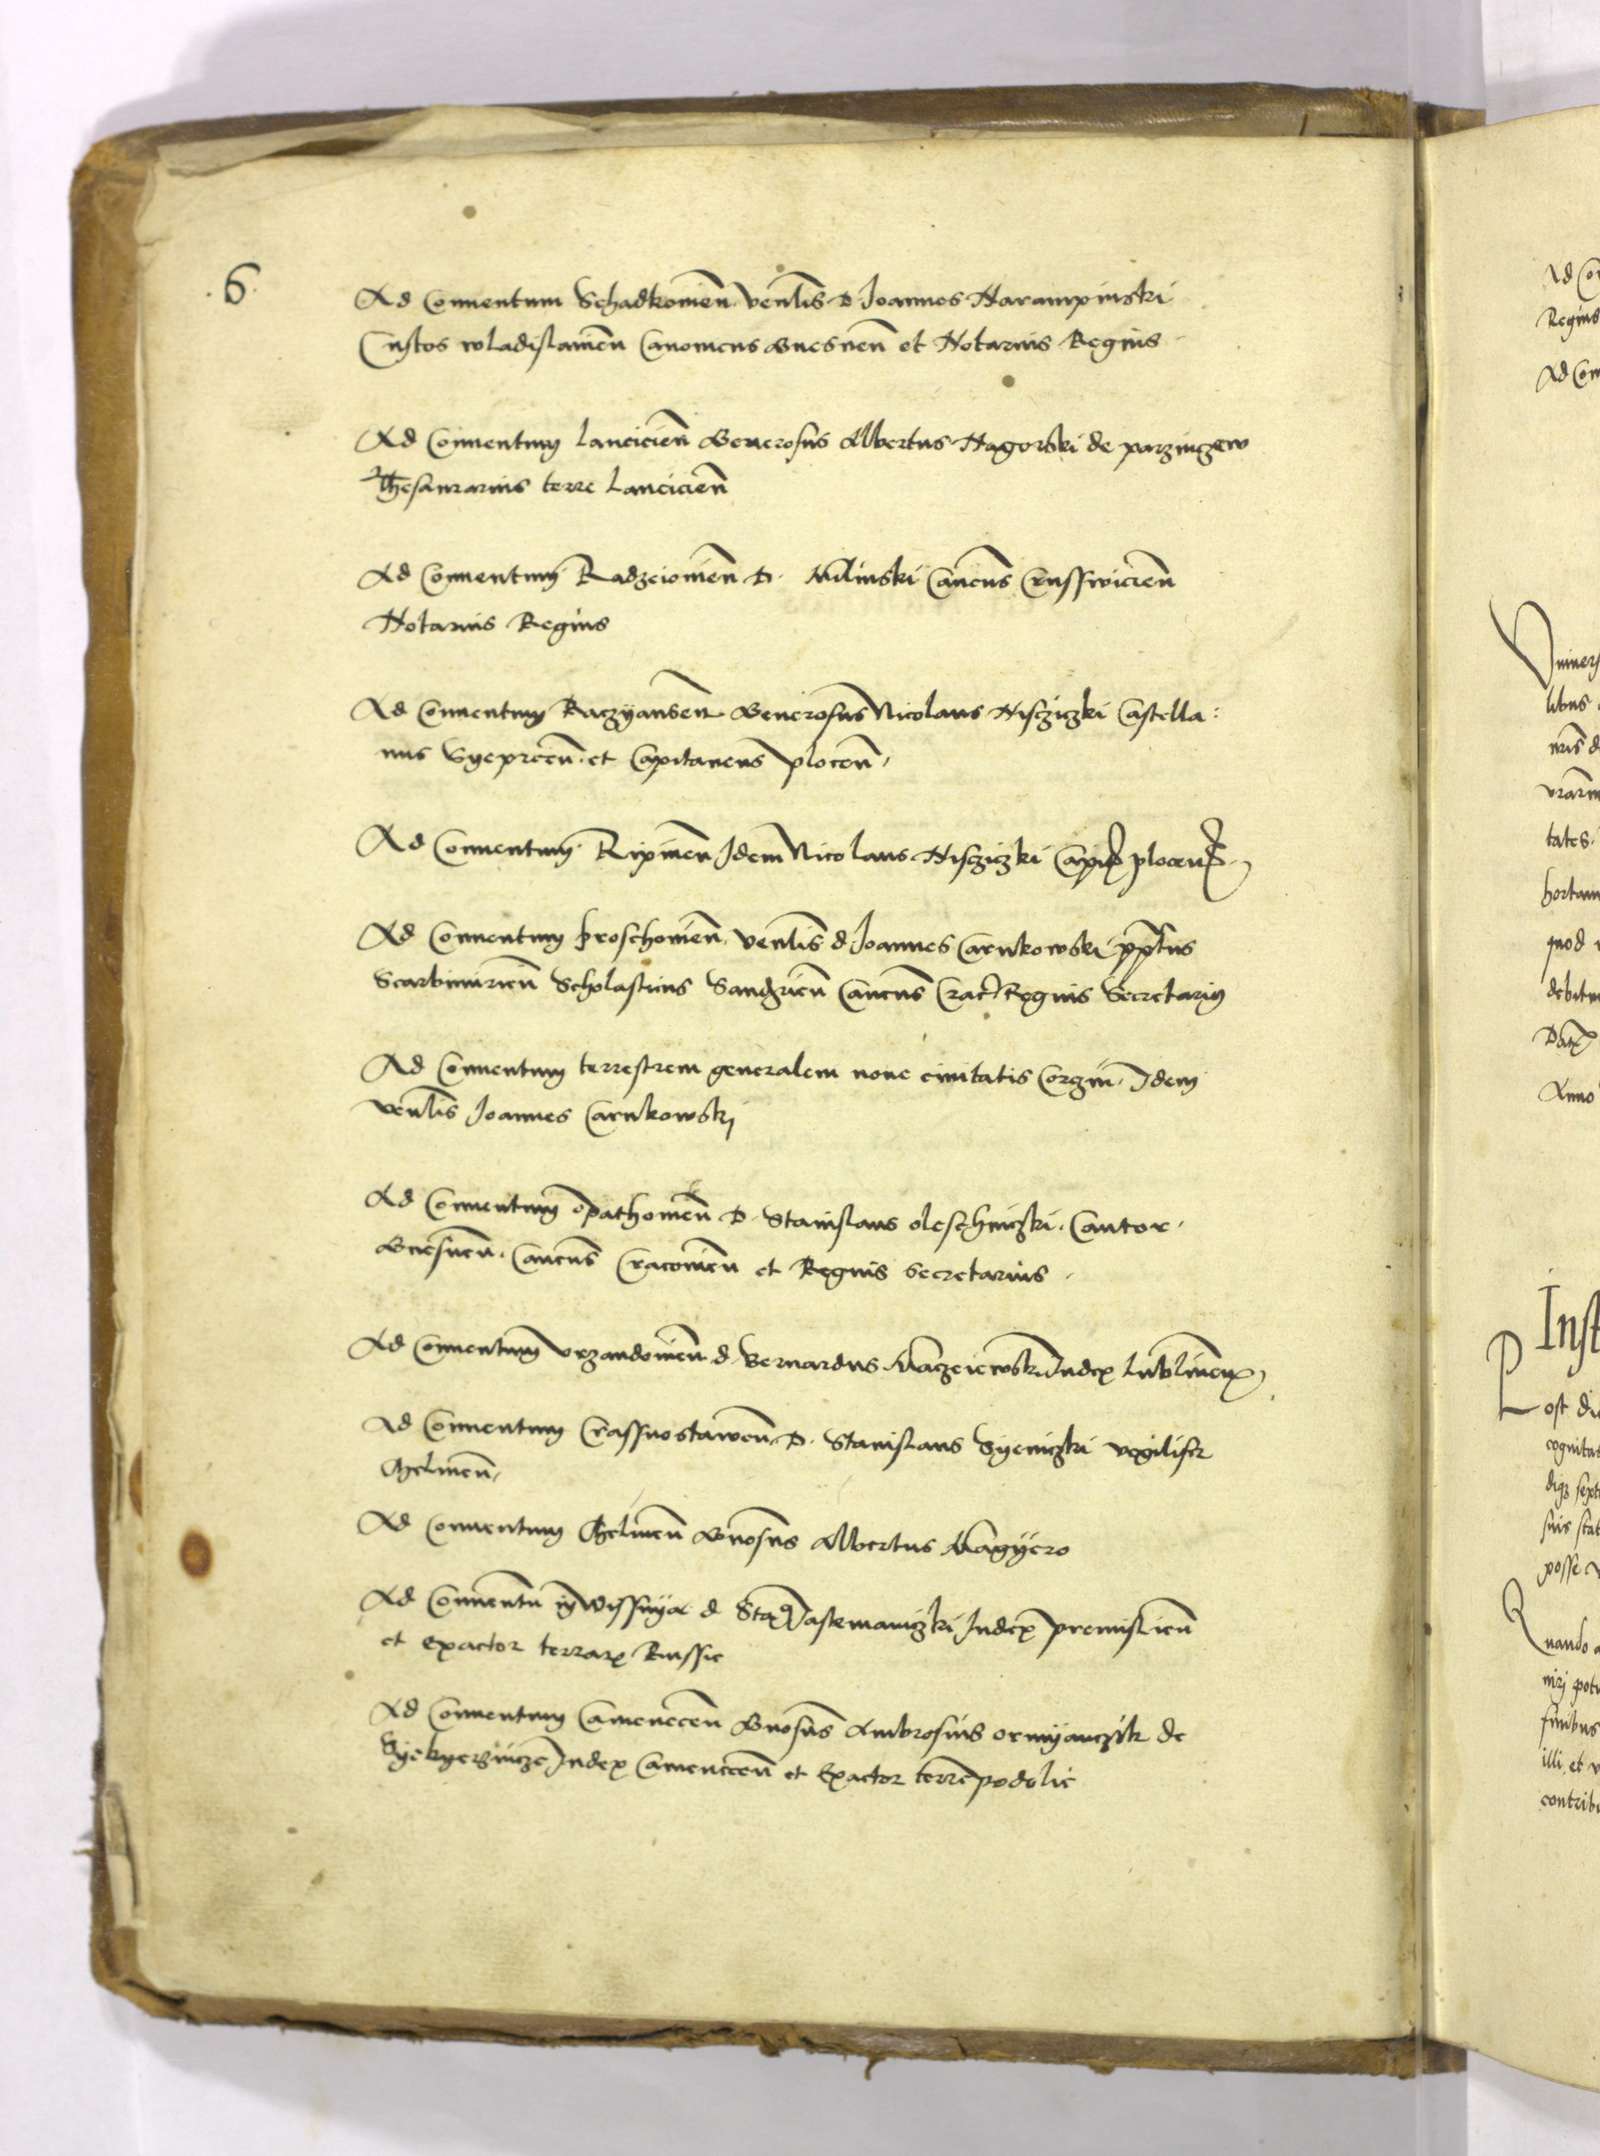 6
Ad Conuentum Schadkouien venlis D Joannes Narampinski
Custos wladislauien Canonicus Gnesnen et Notarius Regius
Ad Conuentum Lancicien Generosus Albertus Nagorski de parzinczew
Thesaurarius terre Lancicien
Ad Conuentum Radzeiouien D. Milinski Cancus Crusswicien
Notarius Regius
Ad Conuentum Raczyansen Generosus Nicolaus Nisczizki Castella:
nus Vyeprcen et Capitaneus plocen
Ad Conuentum Ripinen Idem Nicolaus Nisczizki Capits plocens
Ad Conuentum proschouien venlis d Joannes Carnkowski pptus
Scarbimirien Scholasticus Sandzrien Cancus Crac Regius Secretarig
Ad Conuentum terrestrem generalem noue ciuitatis Corzin Idem
venlis Joannes Carnkowskj
Ad Conuentum opathouien D. Stanislaus oleschniczki Cantor
Gnesnen Cancus Cracouien et Regius secretarius
Ad Conuentum vrzandouien d Bernardus Maczeiewski Judex Lublinens
Ad Conuentum Crassnostawen D. Stanislaus Syeniczki vexilifer
Chelmen
Ad Conuentum Chelmen Gnosus Albertus Magyero
Ad Conuentu in Wissnya d Stas Wastemaniczki Judex premislien
et exactor terrarum Russie
Ad Conuentum Camenecen Gnosus Ambrosius ormyanczik de
Judex Camenecen et Exactor terre podolie
Ad Con
Regius
Ad Con
Vniuers
libus
nris d
tates
hortam
quod
debitu
Dat
Anno
Inst
Post die
cognitas
diqz sept
suis stat
posse
Quando a
potu
finibus
illi, et
contribu